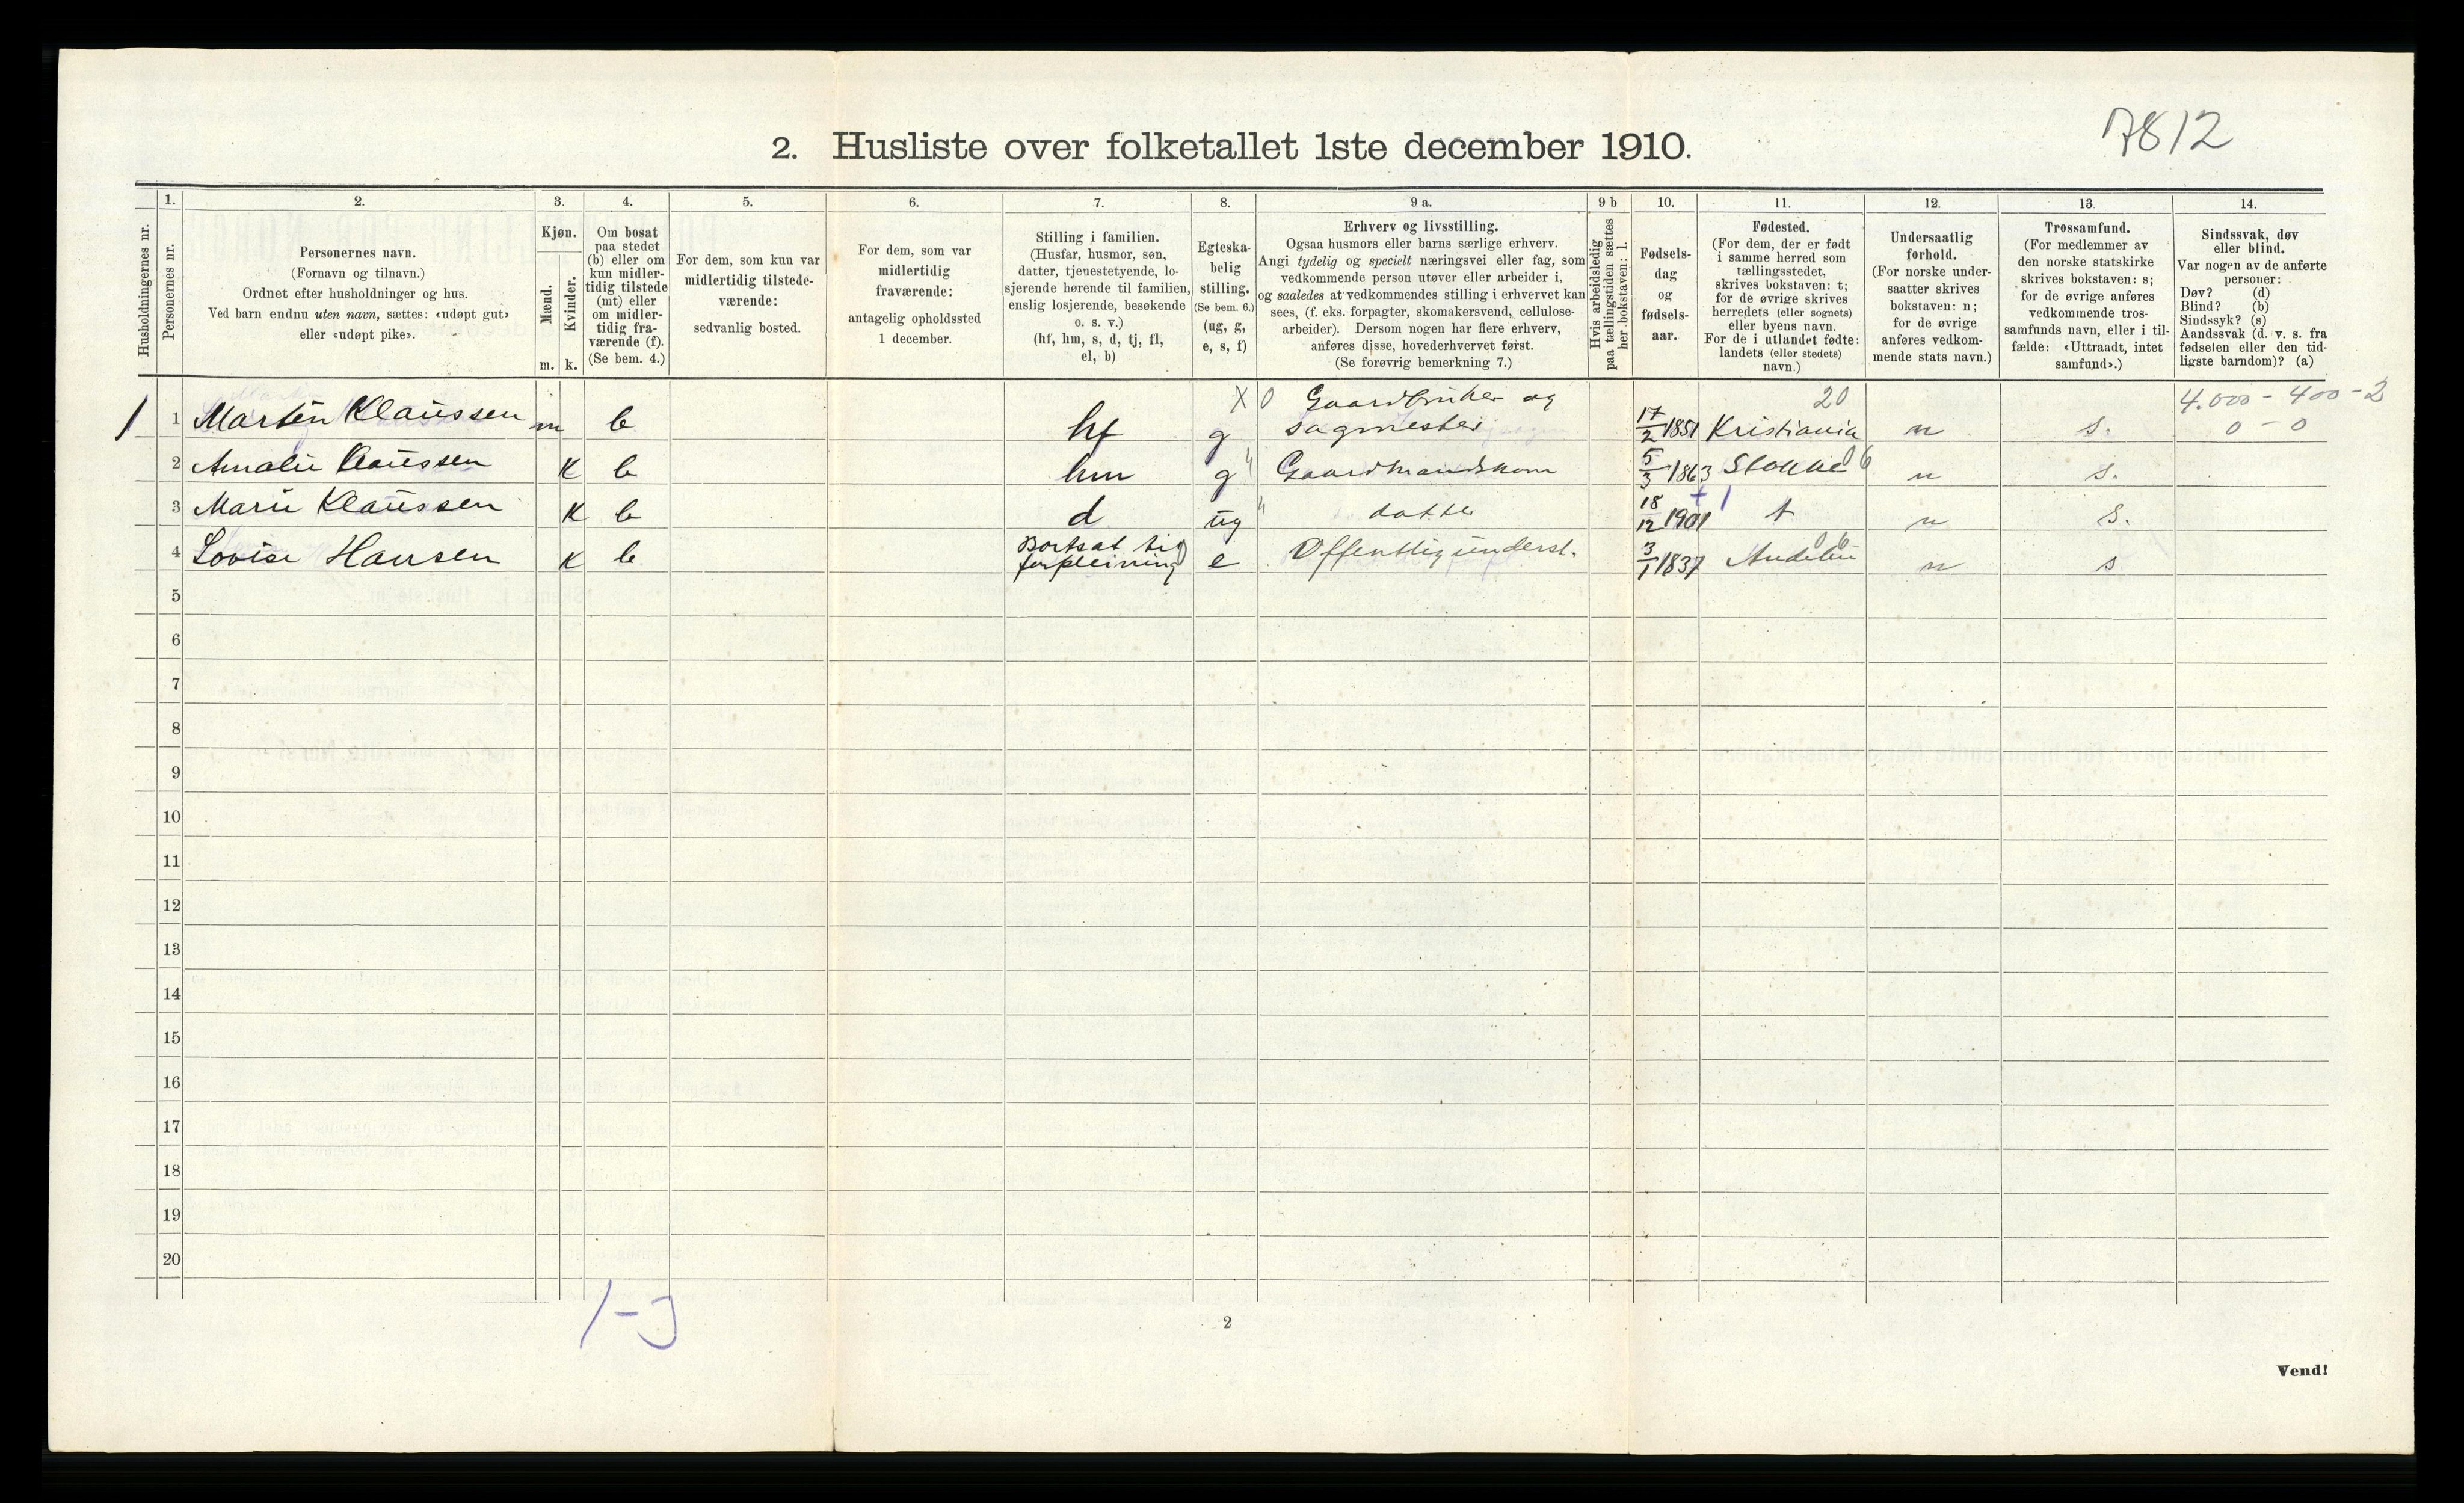 7812
2. Husliste over folketallet 1ste december 1910.
Husholdningernes nr.
1.
Personernes nr.
2.
Personernes navn.
(Fornavn og tilnavn.)
Ordnet efter husholdninger og hus.
Ved barn endnu uten navn, sættes: «udøpt gut»
eller «udøpt pike».
3.
Kjøn.
Mænd.
m.
Kvinder.
k.
4.
Om bosat
paa stedet
(b) eller om
kun midler-
tidig tilstede
(mt) eller
om midler-
tidig fra-
værende (f).
(Se bem. 4.)
5.
For dem, som kun var
midlertidig tilstede-
værende:
sedvanlig bosted.
6.
For dem, som var
midlertidig
fraværende:
antagelig opholdssted
1 december.
7.
Stilling i familien.
(Husfar, husmor, søn,
datter, tjenestetyende, lo-
sjerende hørende til familien,
enslig losjerende, besøkende
o. s. v.)
(hf, hm, s, d, tj, fl,
el, b)
8.
Egteska-
belig
stilling.
(Se bem. 6.)
(ug, g,
e, s, f)
9 a.
Erhverv og livsstilling.
Ogsaa husmors eller barns særlige erhverv.
Angi tydelig og specielt næringsvei eller fag, som
vedkommende person utøver eller arbeider i,
og saaledes at vedkommendes stilling i erhvervet kan
sees, (f. eks. forpagter, skomakersvend, cellulose-
arbeider). Dersom nogen har flere erhverv,
anføres disse, hovederhvervet først.
(Se forøvrig bemerkning 7.)
9 b
Hvis arbeidsledig
paa tællingstiden sættes
her bokstaven: l.
10.
Fødsels-
dag
og
fødsels-
aar.
11.
Fødested.
(For dem, der er født
i samme herred som
tællingsstedet,
skrives bokstaven: t;
for de øvrige skrives
herredets (eller sognets)
eller byens navn.
For de i utlandet fødte:
landets (eller stedets)
navn.)
12.
Undersaatlig
forhold.
(For norske under-
saatter skrives
bokstaven: n;
for de øvrige
anføres vedkom-
mende stats navn.)
13.
Trossamfund.
(For medlemmer av
den norske statskirke
skrives bokstaven: s;
for de øvrige anføres
vedkommende tros-
samfunds navn, eller i til-
fælde: «Uttraadt, intet
samfund».)
14.
Sindssvak, døv
eller blind.
Var nogen av de anførte
personer:
Døv? (d)
Blind? (b)
Sindssyk? (s)
Aandssvak (d. v. s. fra
fødselen eller den tid-
ligste barndom)? (a)
X 0 Gaardbruker og 20 4.000 - 400 - 2
1 1 Martin Klaussen m b hf g sagmester 17/2 1851 Kristiania n s. 0 - 0
2 Amalie Klaussen K b hm g " Gaardmandskone 5/3 1863 Stokke 06 n s.
3 Marie Klaussen K b d ug " datter 18/12 1901 t n s.
4 Lovise Hansen K b Bortsat til forpleining e Offentlig underst. 3/1 1837 Andebu 06 n s
5
6
7
8
9
10
11
12
13
14
15
16
17
18
19
20
1-3
2
Vend!